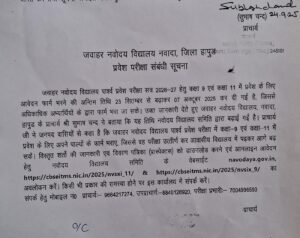 Subhash Chand
24.9.25
(सुभाष चन्द)
प्राचार्य
जवाहर नवोदय विद्यालय नवादा, जिला हापुड़
प्रवेश परीक्षा संबंधी सूचना
जवाहर नवोदय विद्यालय पार्श्व प्रवेश परीक्षा सत्र 2026-27 हेतु कक्षा 9 एवं कक्षा 11 में प्रवेश के लिए
आवेदन फार्म भरने की अन्तिम तिथि 23 सितम्बर से बढ़ाकर 07 अक्टूबर 2025 कर दी गई है, जिससे
अधिकाधिक अभ्यर्थियों के द्वारा फार्म भरा जा सकें। उक्त जानकारी देते हुए जवाहर नवोदय विद्यालय, नवादा,
हापुड़ के प्राचार्य श्री सुभाष चन्द ने बताया कि यह तिथि विद्यालय समिति द्वारा बढ़ाई गई है। प्राचार्य
श्री ने जनपद वासियों से कहा है कि जवाहर नवोदय विद्यालय पार्श्व प्रवेश परीक्षा में कक्षा-9 एवं कक्षा-11 में
प्रवेश के लिए अपने पाल्यों के फार्म भराए, जिससे वह परीक्षा उत्तीर्ण कर आवासीय विद्यालय में पढ़कर आगे बढ़
सकें। विस्तृत शर्तों की जानकारी एवं विवरण पत्रिका (प्रास्पेक्टस) को डाउनलोड करने एवं आनलाइन आवेदन
हेतु नवोदय विद्यालय समिति के वेबसाईट navodaya.gov.in,
https://cbseitms.nic.in/2025/nvsxi_11/ & https://cbseitms.nic.in/2025/nvsix_9/ का
अवलोकन करें। किसी भी प्रकार की समस्या होने पर इस कार्यालय में संपर्क करें।
हेतु मोबाइल नं0 प्राचार्य- उपप्राचार्य- परीक्षा प्रभारी-
O/C
प्राचार्य